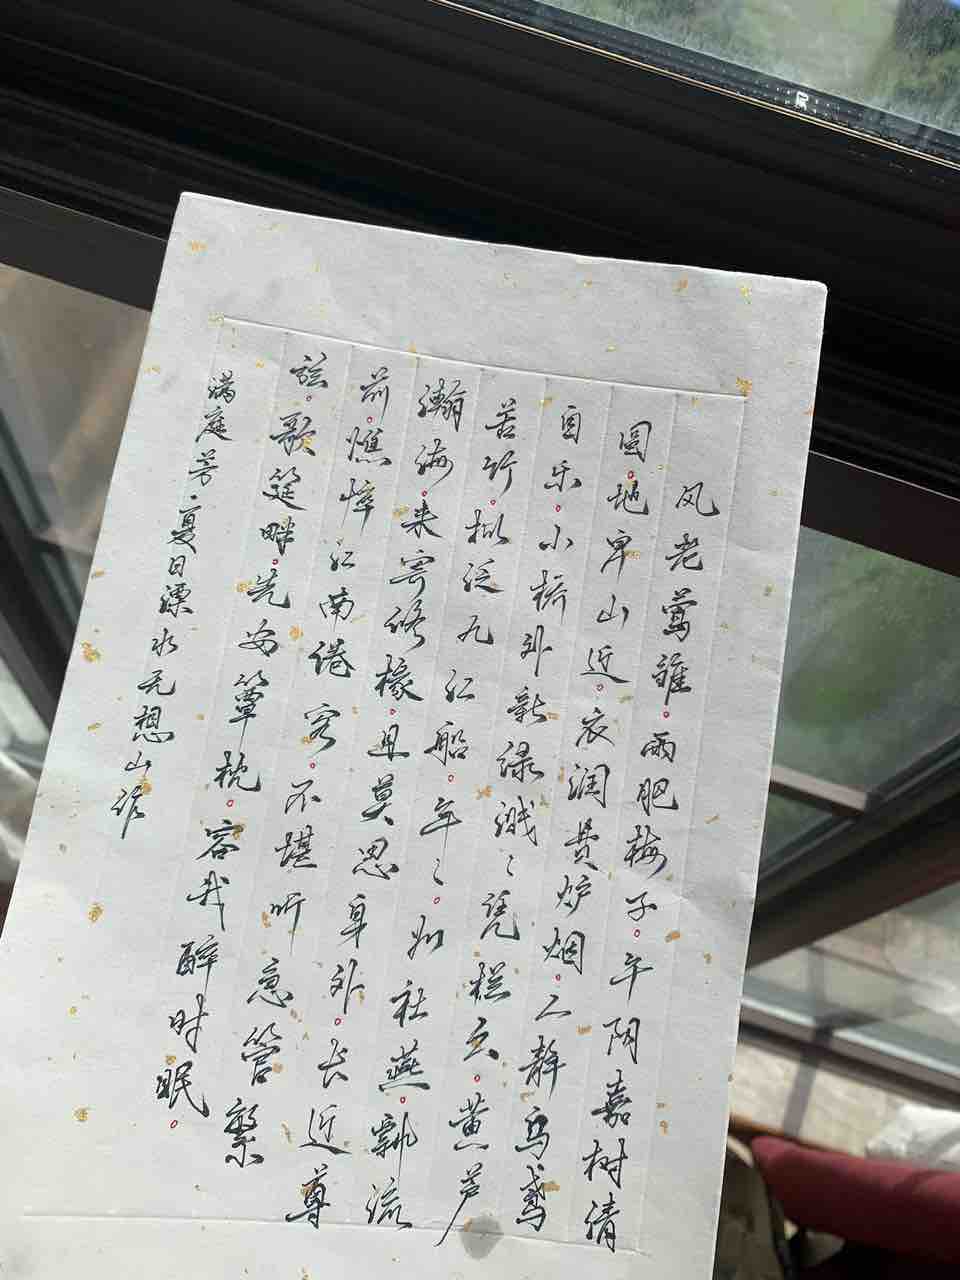 风老莺雏。雨肥梅子。午阴嘉树清
圆。地卑山近。衣润费炉烟。人静乌鸢
自乐。小桥外新绿溅〻凭栏久。黄芦
苦竹。拟泛九江船。年〻。如社燕。飘流
瀚海。来寄修椽。且莫思身外。长近尊
前。憔悴江南倦客。不堪听急管繁
弦。歌筵畔。先安簟枕。容我醉时眠。
满庭芳·夏日溧水无想山作